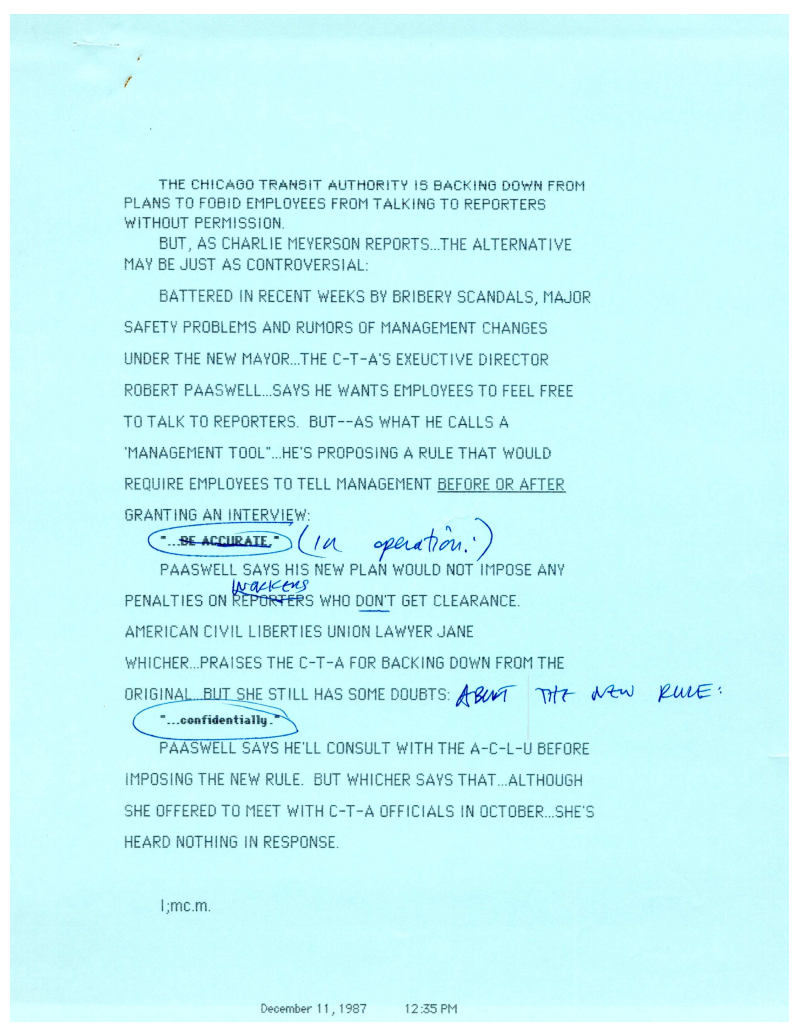 THE CHICAGO TRANSIT AUTHORITY IS BACKING DOWN FROM
PLANS TO FOBID EMPLOYEES FROM TALKING TO REPORTERS
WITHOUT PERMISSION.
BUT, AS CHARLIE MEYERSON REPORTS...THE ALTERNATIVE
MAY BE JUST AS CONTROVERSIAL:
BATTERED IN RECENT WEEKS BY BRIBERY SCANDALS, MAJOR
SAFETY PROBLEMS AND RUMORS OF MANAGEMENT CHANGES
UNDER THE NEW MAYOR...THE C-T-A'S EXEUCTIVE DIRECTOR
ROBERT PAASWELL...SAYS HE WANTS EMPLOYEES TO FEEL FREE
TO TALK TO REPORTERS. BUT--AS WHAT HE CALLS A
'MANAGEMENT TOOL"...HE'S PROPOSING A RULE THAT WOULD
REQUIRE EMPLOYEES TO TELL MANAGEMENT BEFORE OR AFTER
GRANTING AN INTERVIEW:
"...BE ACCURATE." (in operation.")
PAASWELL SAYS HIS NEW PLAN WOULD NOT IMPOSE ANY
WORKERS
PENALTIES ON REPORTERS WHO DON'T GET CLEARANCE.
AMERICAN CIVIL LIBERTIES UNION LAWYER JANE
WHICHER...PRAISES THE C-T-A FOR BACKING DOWN FROM THE
ORIGINAL...BUT SHE STILL HAS SOME DOUBTS: ABOUT THE NEW RULE:
"...confidentially."
PAASWELL SAYS HE'LL CONSULT WITH THE A-C-L-U BEFORE
IMPOSING THE NEW RULE. BUT WHICHER SAYS THAT...ALTHOUGH
SHE OFFERED TO MEET WITH C-T-A OFFICIALS IN OCTOBER...SHE'S
HEARD NOTHING IN RESPONSE.
I;mc.m.
December 11, 1987 12:35 PM